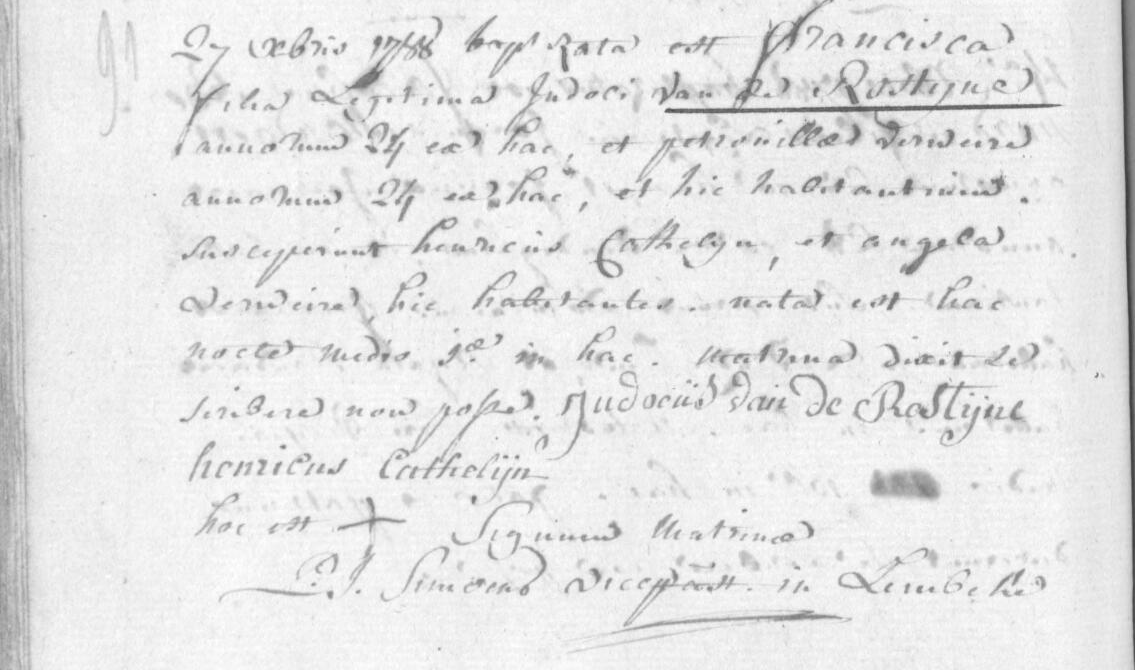 91
27 xbris 1788 baptizata est francisca
filia Legitima Judoci van de Rostyne
annorum 24 ex hac, et petronillæ verveire
annorum 24 ex hac, et hic habitantium.
susceperunt henricus Cathelyn, et angela
verveire, hic habitantes. nata est hac
nocte media 1æ in hac. matrina dixit se
scribere non posse. Judocus van De Rostijne
henricus Cathelijn
hoc est + Signum Matrinæ
P. J. Simoens vicepast. in Lembeke